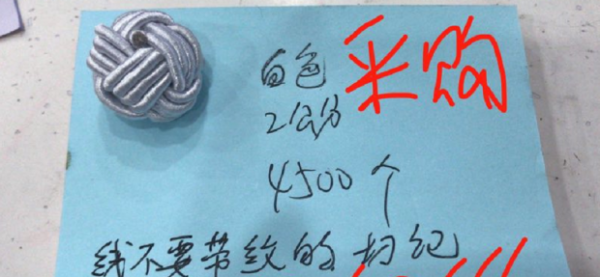 白色
采购
2公分
4500个
线不要带纹的扫纪